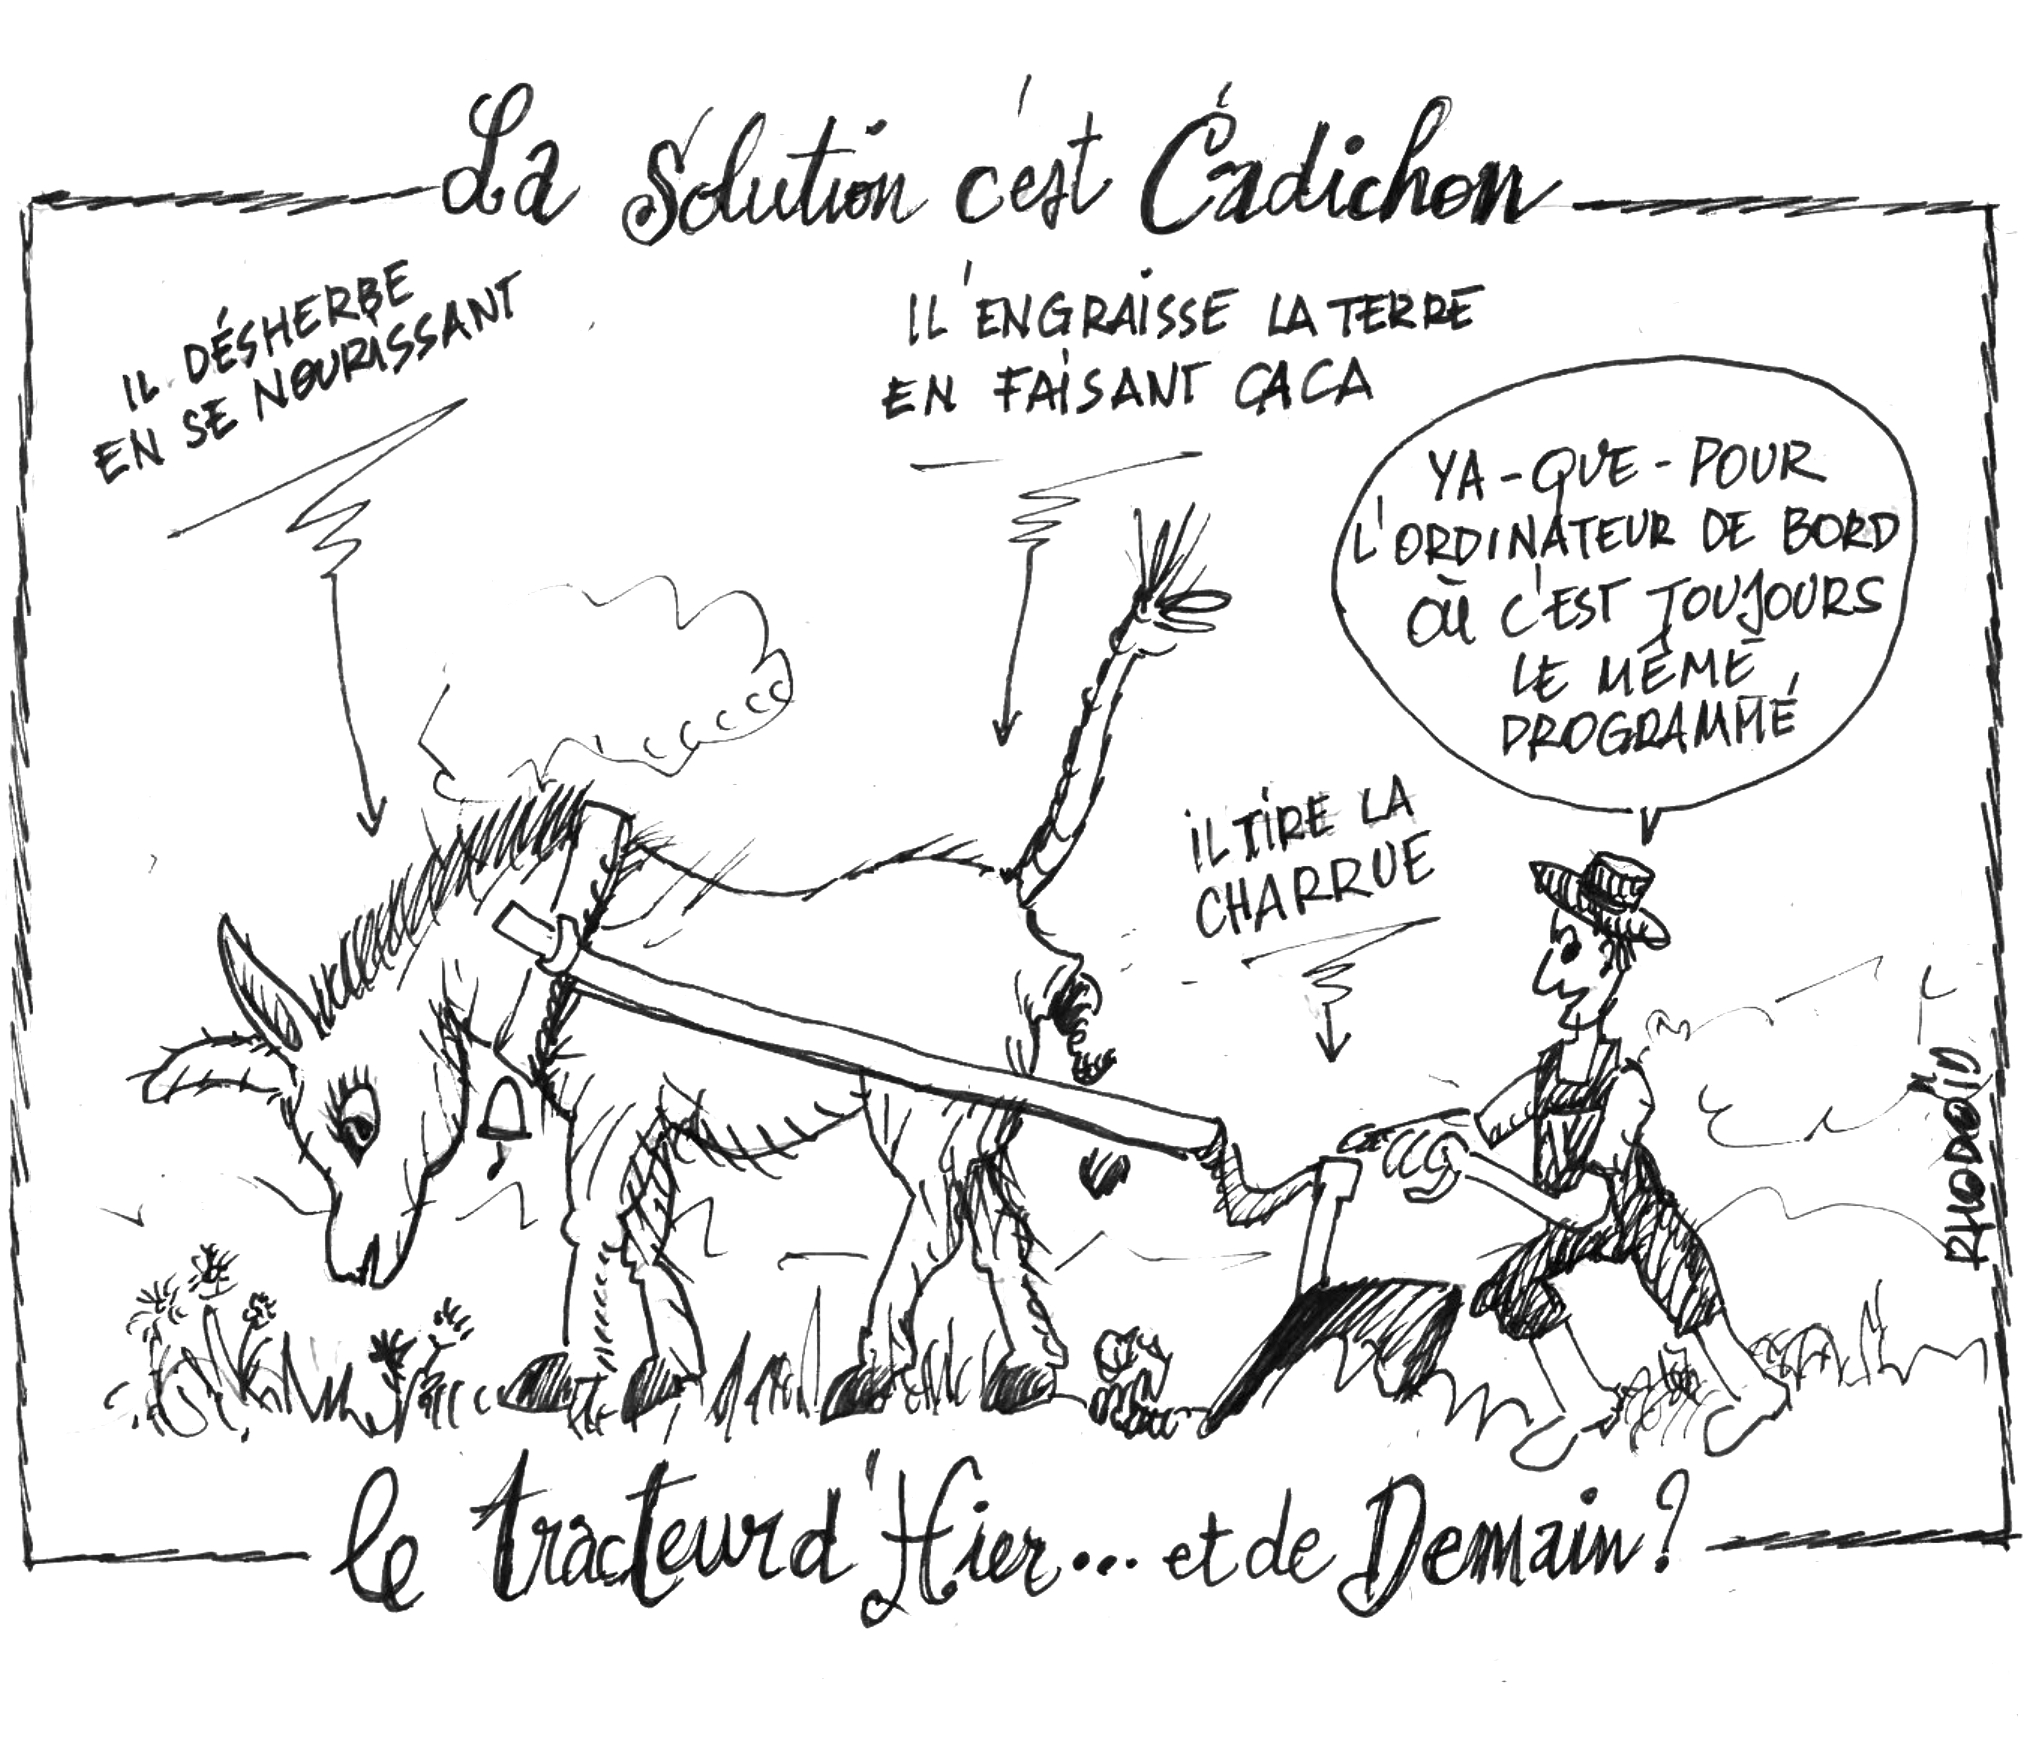 La Solution c'est Cadichon
IL DÉSHERBE
EN SE NOURISSANT
IL ENGRAISSE LA TERRE
EN FAISANT CACA
YA-QUE-POUR
L'ORDINATEUR DE BORD
OÙ C'EST TOUJOURS
LE MÊME
PROGRAMME
IL TIRE LA
CHARRUE
le tracteur d'Hier... et de Demain?